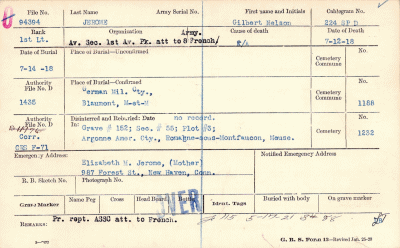 File No. Last Name Army Serial No. First name and Initials Cablegram No.
94394 JEROME Gilbert Nelson 224 SP D
Rank Organization Army. Cause of death Date of Death
1st Lt. Av. Sec. 1st Av. Pk. att to 8 French/ K/A 7-12-18
Date of Burial Place of Burial—Unconfirmed No.
7-14 -18 Cemetery Commune
Authority File No. D Place of Burial—Confirmed No.
1435 German Mil. Cty., Cemetery 1158
Blaumont, M-et-M Commune
Authority File No. D Disinterred and Reburied: Date no record. No.
Corr. In: Grave # 152; Sec. # 35; Plot #3; Cemetery 1232
CES F-71 Argonne Amer. Cty., Romagne-sous-Montfaucon, Meuse. Commune
Emergency Address: Notified Emergency Address
Elizabeth M. Jerome, (Mother)
R. B. Sketch No. 987 Forest St., New Haven, Conn.
Photograph No.
Grave Marker Name Peg Cross Head Board Bottle Ident. Tags Buried with body On grave marker
OVER
Remarks: Pr. rept. ASSC att. to French.
G. R. S. Form 13—Revised Jan.